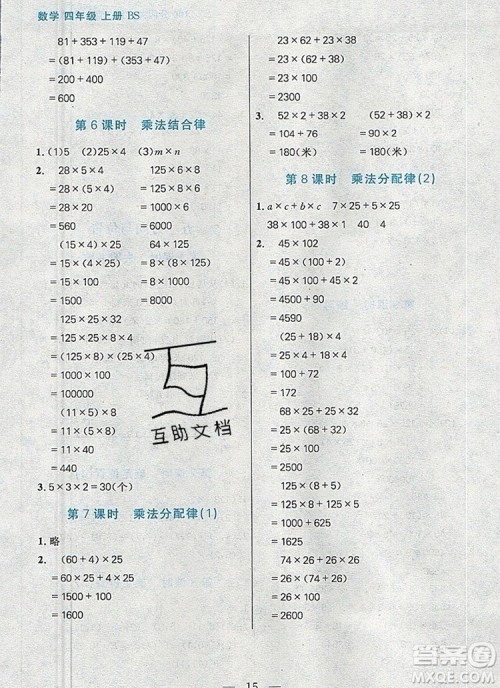 数学 四年级 上册 BS
81+353+119+47
=(81+119)+(353+47)
=200+400
=600
第6课时 乘法结合律
1.(1)5 (2)25×4 (3)m×n
2. 28×5×4 125×6×8
=28×(5×4) =125×8×6
=28×20 =1000×6
=560 =6000
(15×4)×25 64×125
=15×(4×25) =8×(8×125)
=15×100 =8×1000
=1500 =8000
125×25×32
=125×25×(8×4)
=(125×8)×(25×4)
=1000×100
=100000
(11×5)×8
=11×(5×8)
=11×40
=440
3.5×3×2=30(个)
第7课时 乘法分配律(1)
1.略
2. (60+4)×25
=60×25+4×25
=1500+100
=1600
23×62+23×38
=23×(62+38)
=23×100
=2300
3. 52×2+38×2 (52+38)×2
=104+76 =90×2
=180(米) =180(米)
第8课时 乘法分配律(2)
1.a×c+b×c 7×25+5×25
38×100+38×1 40 4
2. 45×102
=45×(100+2)
=45×100+45×2
=4500+90
=4590
(25+18)×4
=25×4+18×4
=100+72
=172
68×25+32×25
=25×(68+32)
=25×100
=2500
125×(8+5)
=125×8+125×5
=1000+625
=1625
74×26+26×26
=26×(74+26)
=26×100
=2600
互助文档
15
作业精灵